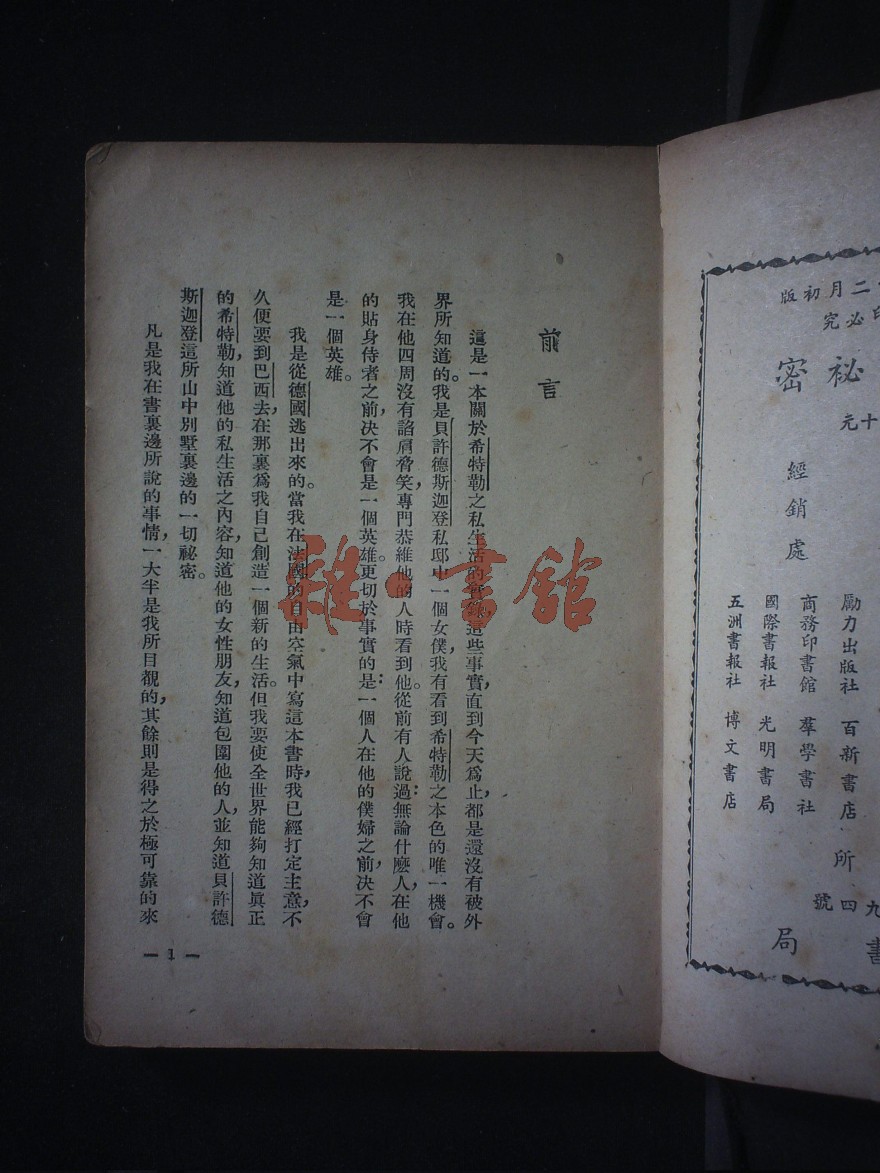 二月初版
印必究
祕密
十元
經銷處
勵力出版社 百新書店
商務印書館 羣學書社
國際書報社 光明書局
五洲書報社 博文書店
所
九四號
書局
前言
這是一本關於希特勒之私生活的實錄,這些事實,直到今天爲止,都是還沒有被外
界所知道的。我是貝許德斯迦登私邸中一個女僕,我有看到希特勒之本色的唯一機會。
我在他四周沒有諂肩脅笑,專門恭維他的人時看到他。從前有人說過:無論什麽人,在他
的貼身侍者之前,决不會是一個英雄。更切於事實的是:一個人在他的僕婦之前,决不會
是一個英雄。
我是從德國逃出來的。當我在法國的自由空氣中寫這本書時,我已經打定主意,不
久便要到巴西去,在那裏爲我自己創造一個新的生活。但我要使全世界能夠知道眞正
的希特勒,知道他的私生活之內容,知道他的女性朋友,知道包圍他的人,並知道貝許德
斯迦登這所山中別墅裏邊的一切祕密。
凡是我在書裏邊所說的事情,一大半是我所目覩的,其餘則是得之於極可靠的來
— 1 —
雜·書館